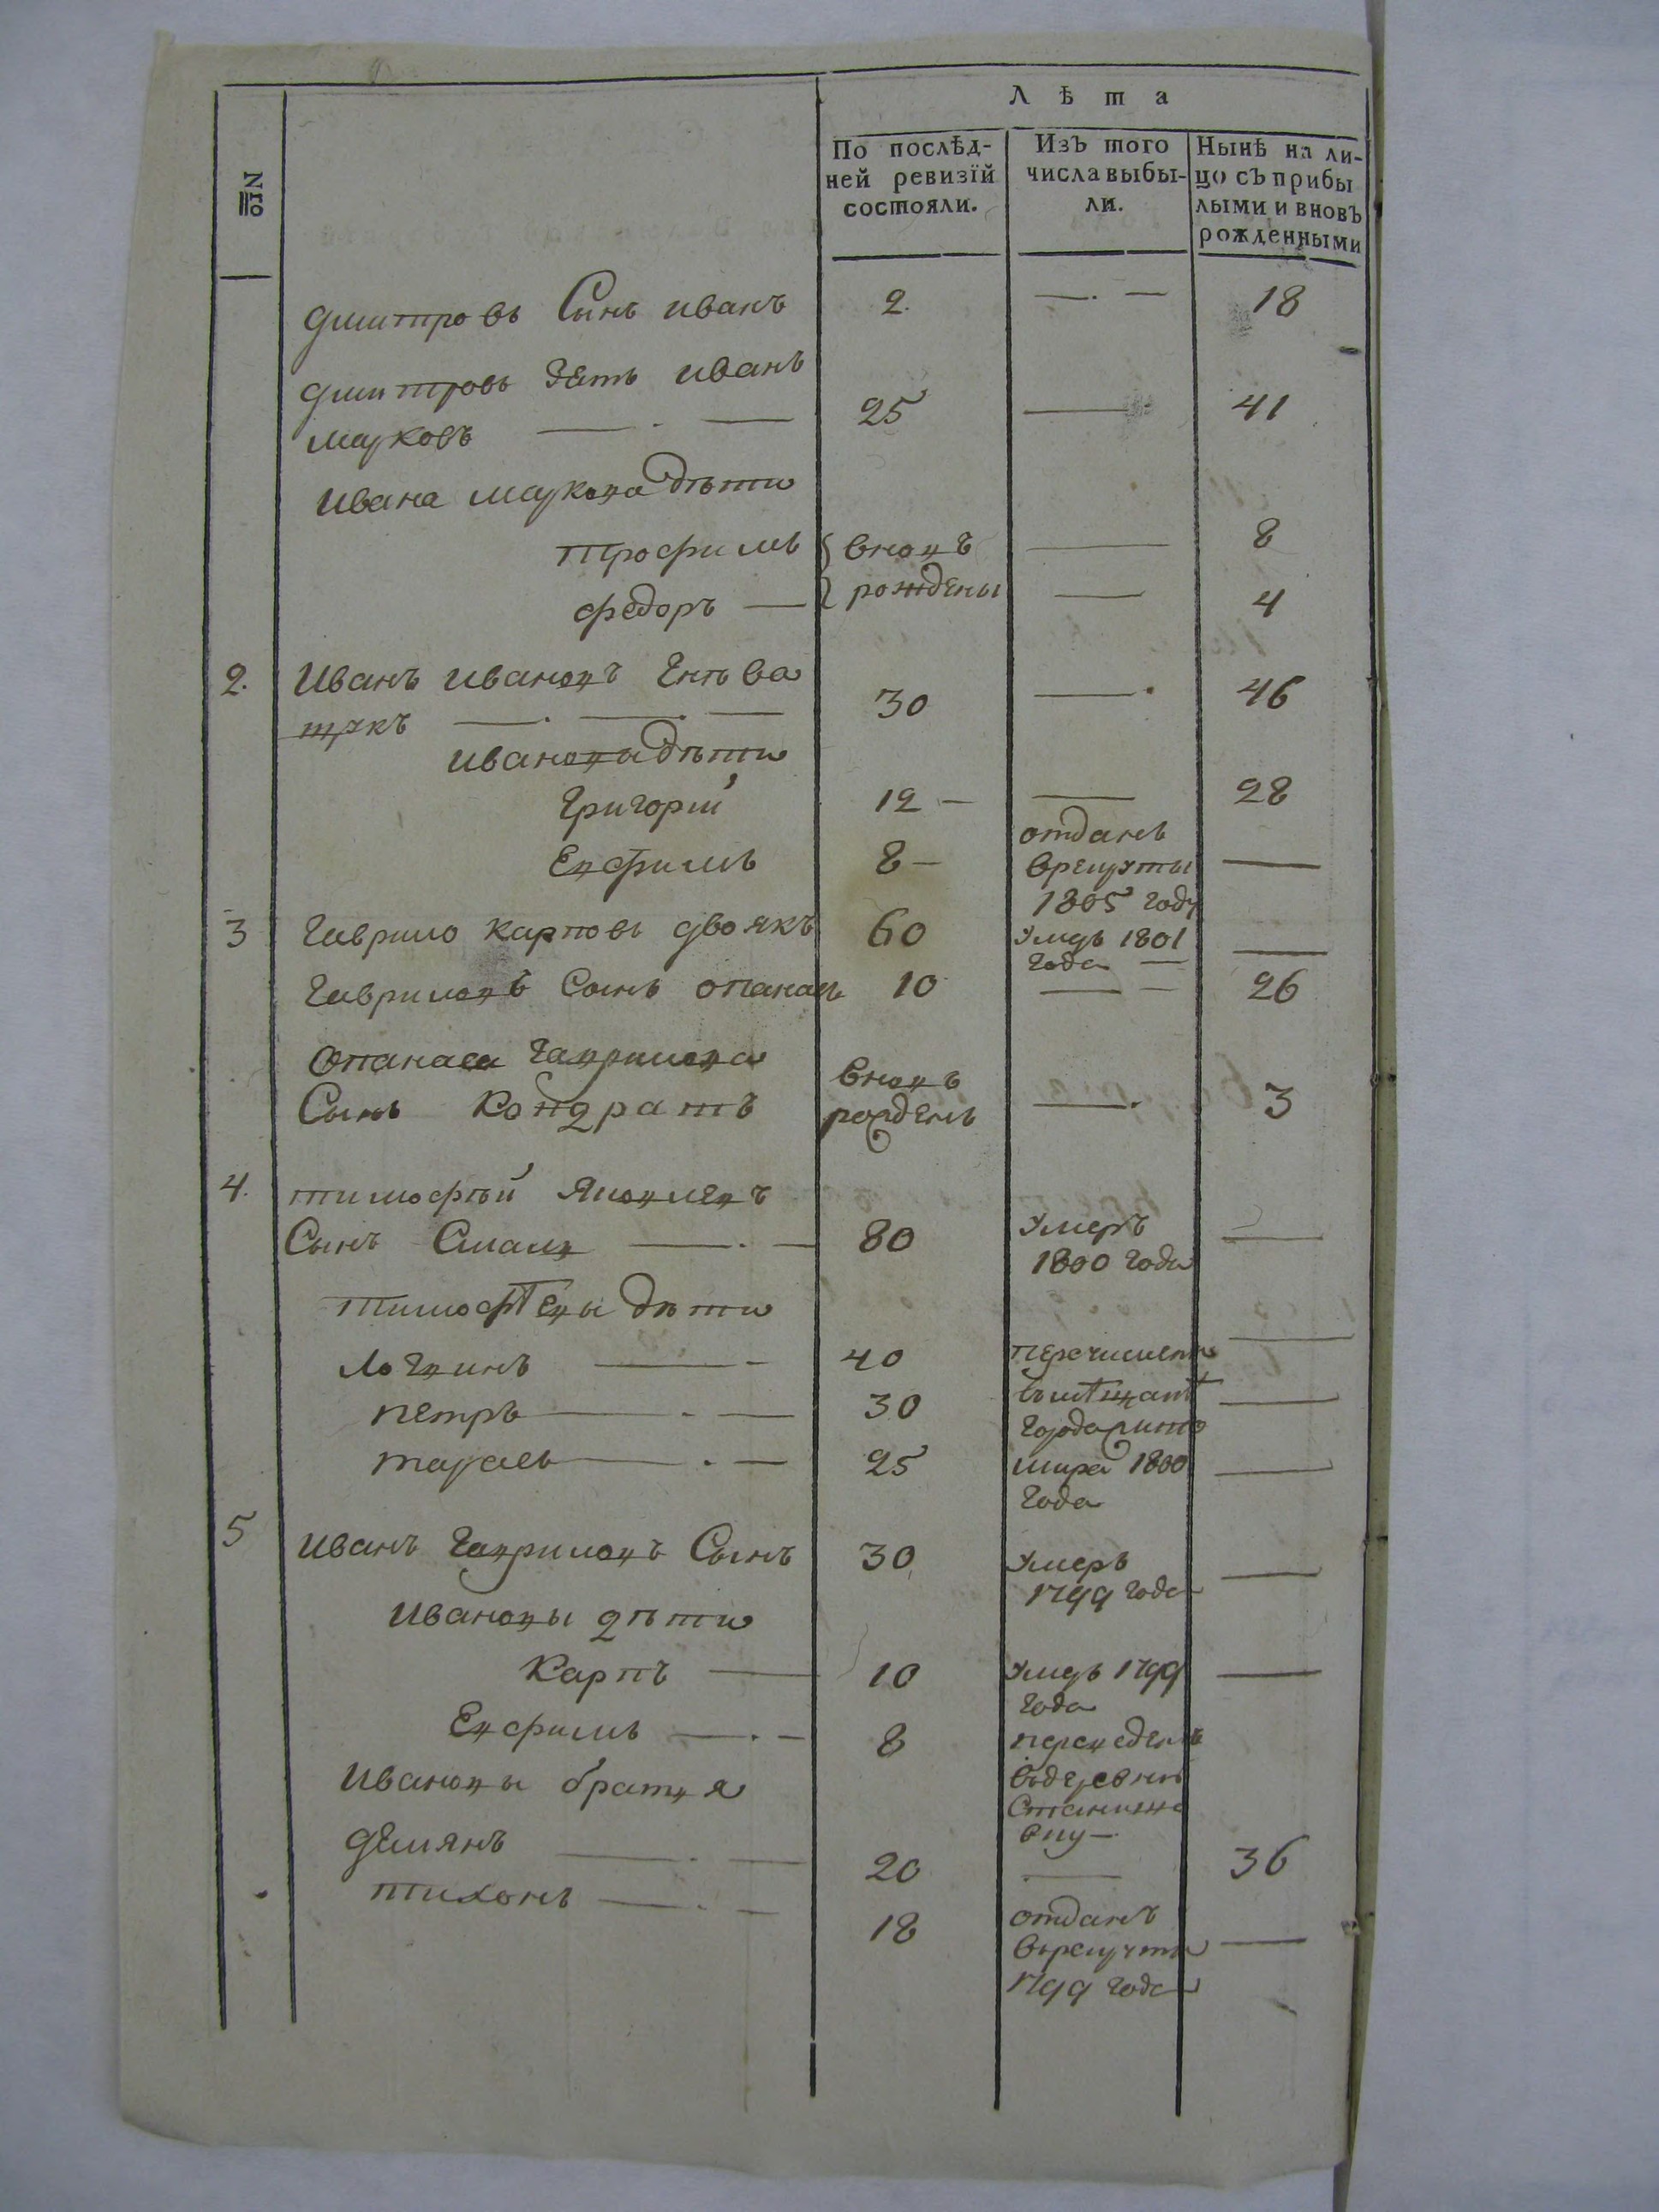 Лѣта
№
По послѣд-
ней ревизїй
состояли.
Изъ того
числа выбы-
ли.
Нынѣ на ли-
цо съ прибы
лыми и вновь
рожденными
дмитровъ Сынъ иванъ 2. —.— 18
дмитровъ зеть иванъ
марковъ —.— 25 — 41
Ивана маркова дѣти
трофимъ вновъ — 8
федоръ — рождены — 4
2. Иванъ ивановъ
30 —. 46
ивановы дѣти
Григорий 12 — — 28
Ефимъ 8 — отданъ
врекруты —
1805 году
3 Гаврило карповъ двоякъ 60 умеръ 1801 —
года —
Гавриловъ Сынъ опанасъ 10 — — 26
Опанаса Гаврилова вновъ
Сынъ Кондратъ рожденъ —. 3
4. тимофѣй Яковлевъ
Сынъ —.— 80 умеръ —
1800 года
тимофѣевы дѣти
логвинъ — 40 перечислены —
петръ —.— 30 въмѣщанѣ —
города
тарасъ —.— 25 мира 1800 —
года
5 Иванъ Гавриловъ Сынъ 30 умеръ —
1799 года
Ивановы дѣти
Карпъ — 10 умеръ 1799 —
года
Ефимъ —.— 8 переведенъ
Ивановы братя въдеревню
демянъ —.— 20 — 36
тихонъ —.— 18 отданъ
врекруты —
1799 года